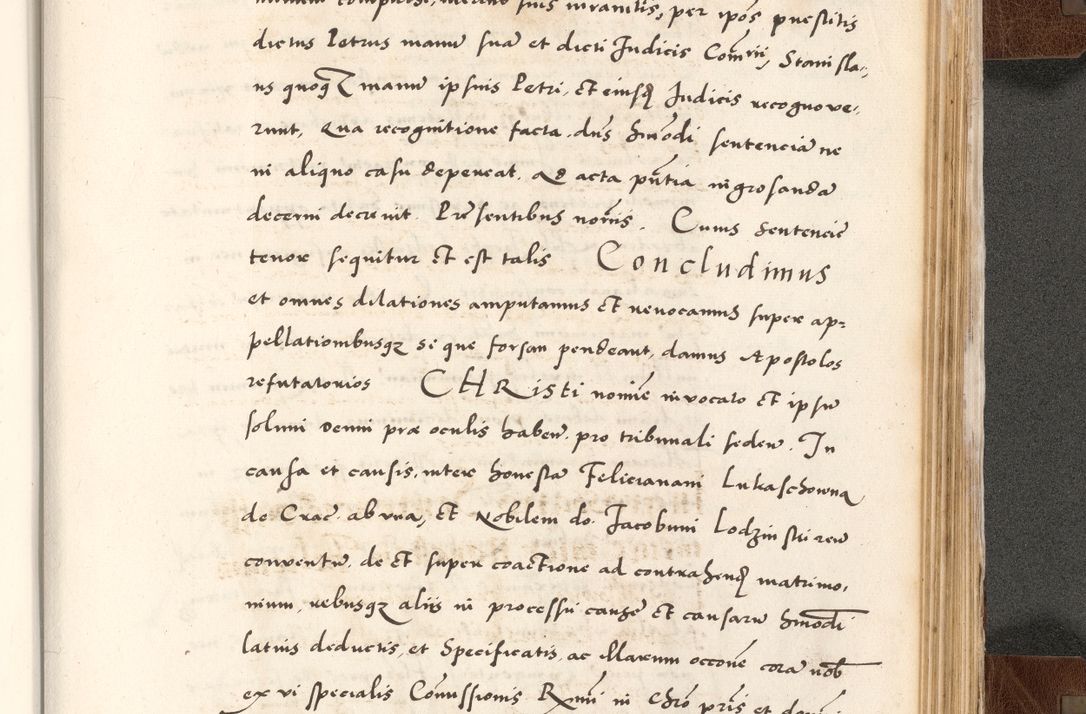 suis iuramentis, per ipos prestitis
dictus Petrus manu sua et dicti Judicis Comrii, Stanisla-
us quoq manu ipsius Petri, et eiusq Judicis recognove-
runt, Qua recognitione facta, dns hmodi sentenciā ne
in aliquo casu depereat, ad acta pntia ingrosandā
decerni decrevit. Prēsentibus nōrīis. Cuius Sentencie
tenor sequitur et est talis Concludimus
et omnes dilationes amputamus et revocamus super ap=
pellationibusqz se que forsan pendeant, damus Apostolos
refutatorios CHRisti nomīe invocato et ipsū
solum Deum præ oculis haben, pro tribunali seden, In
causa et causis, inter honestā Felicianam Lukaschowna
de Crac ab una, et Nobilem do. Jacobum Lodzinski reū
conventū, de et super coactione ad contrahenđ matrimo,
nium, rebusqz aliis in processu causę et causarū hmodi
latius deductis, et Specificatis, ac illarum occōne corā nob
ex vi specialis Cōmissionis Rmi in Chro pris et